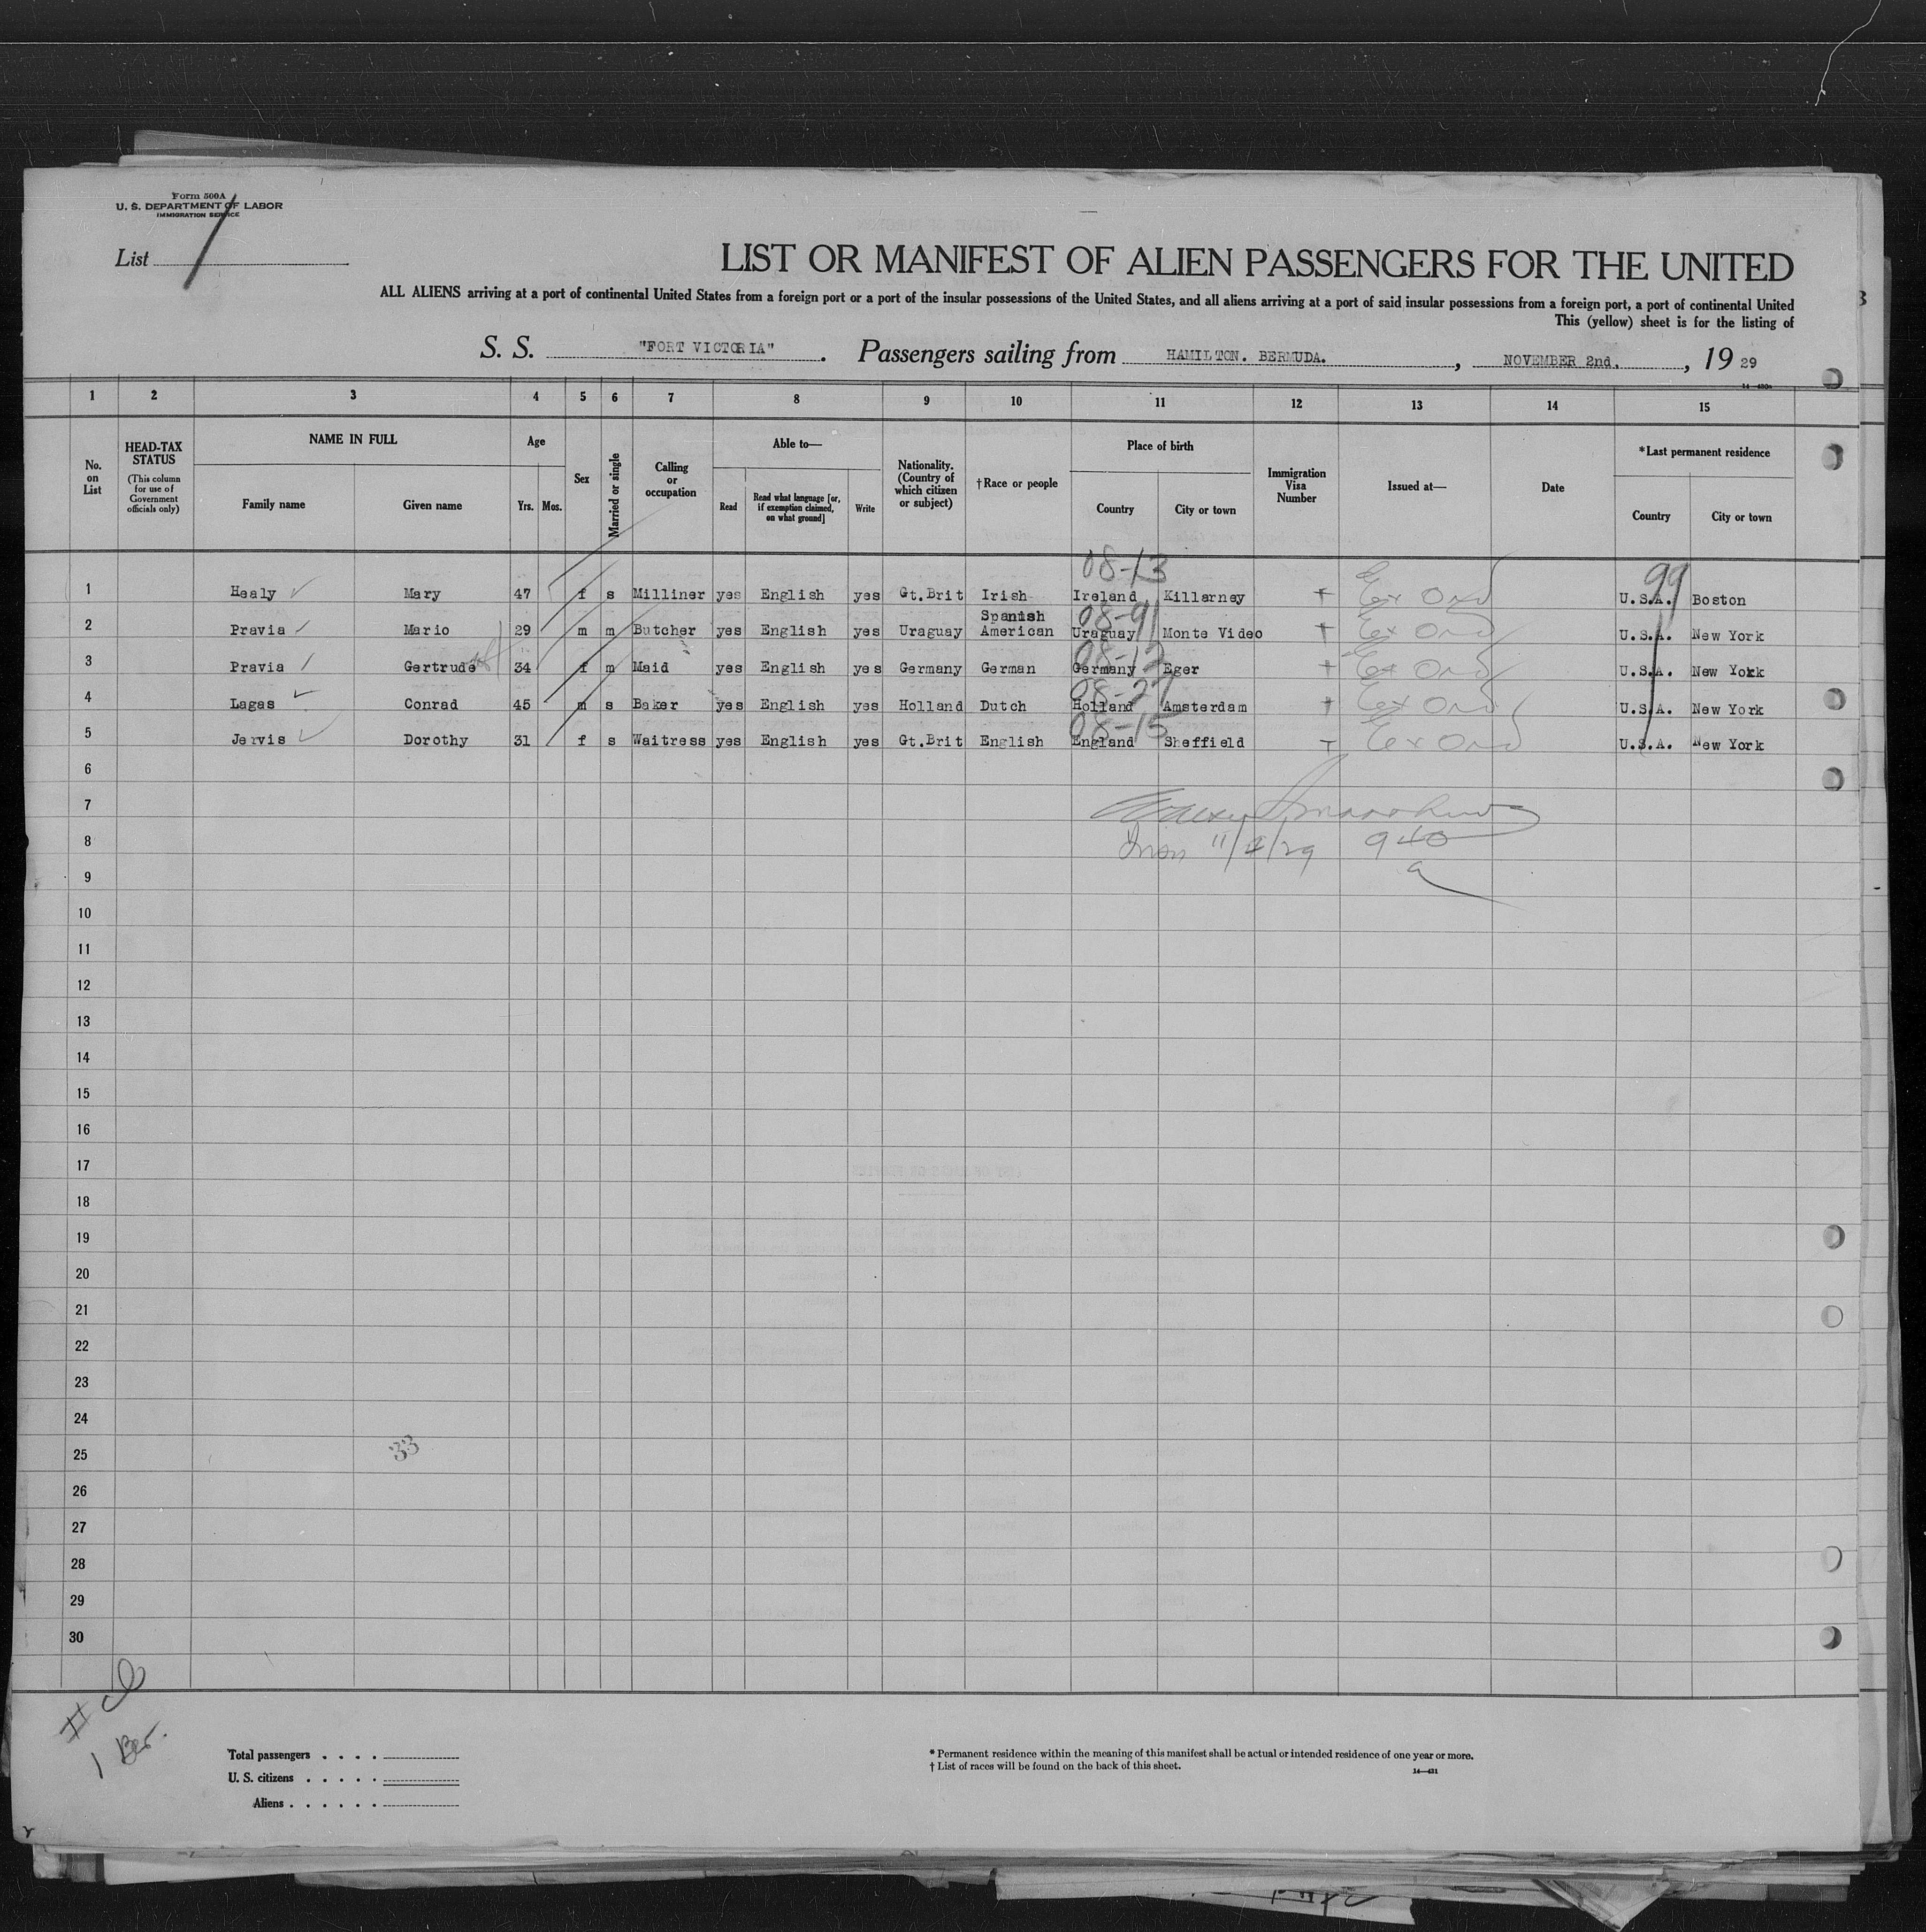 Form 500A
U. S. DEPARTMENT OF LABOR
IMMIGRATION SERVICE
List 1
LIST OR MANIFEST OF ALIEN PASSENGERS FOR THE UNITED
ALL ALIENS arriving at a port of continental United States from a foreign port or a port of the insular possessions of the United States, and all aliens arriving at a port of said insular possessions from a foreign port, a port of continental United
This (yellow) sheet is for the listing of
S. S. "FORT VICTORIA". Passengers sailing from HAMILTON. BERMUDA., NOVEMBER 2nd., 1929
1 2 3 4 5 6 7 8 9 10 11 12 13 14 15
No. on List
HEAD-TAX STATUS (This column for use of Government officials only)
NAME IN FULL
Family name
Given name
Age
Yrs. Mos.
Sex
Married or single
Calling or occupation
Able to—
Read
Read what language [or, if exemption claimed, on what ground]
Write
Nationality. (Country of which citizen or subject)
†Race or people
Place of birth
Country
City or town
Immigration Visa Number
Issued at—
Date
*Last permanent residence
Country
City or town
08-13 99
1 Healy Mary 47 f s Milliner yes English yes Gt.Brit Irish Ireland Killarney Ex Ord U.S.A. Boston
Spanish 08-91
2 Pravia Mario 29 m m Butcher yes English yes Uraguay American Uraguay Monte Video Ex Ord U.S.A. New York
08-12
3 Pravia Gertrude 34 f m Maid yes English yes Germany German Germany Eger Ex Ord U.S.A. New York
08-27
4 Lagas Conrad 45 m s Baker yes English yes Holland Dutch Holland Amsterdam Ex Ord U.S.A. New York
08-15
5 Jervis Dorothy 31 f s Waitress yes English yes Gt.Brit English England Sheffield Ex Ord U.S.A. New York
6
7
8 11/4/29 940
9 a
10
11
12
13
14
15
16
17
18
19
20
21
22
23
24
25 33
26
27
28
29
30
1 Ber.
Total passengers . . . .
U. S. citizens . . . . .
Aliens . . . . . .
* Permanent residence within the meaning of this manifest shall be actual or intended residence of one year or more.
† List of races will be found on the back of this sheet.
14—421